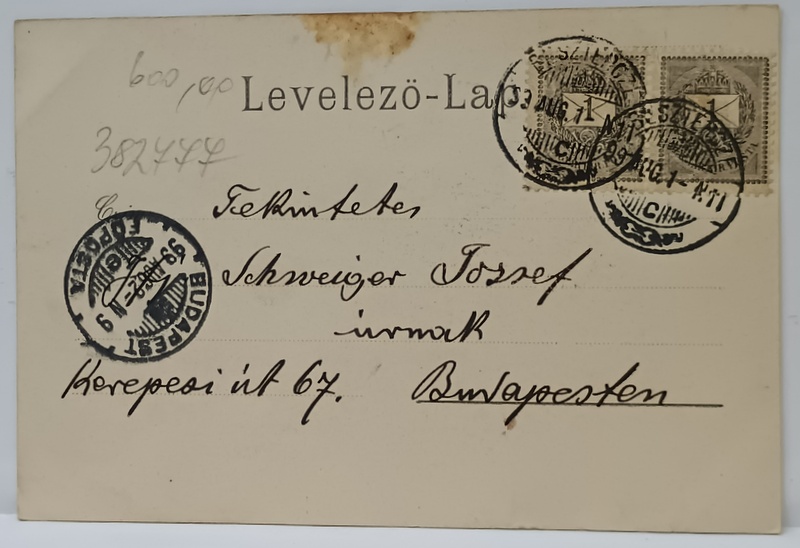 600,00
Levelező-Lap
382477
1
1
99 AUG. 1
AUG. 1 - N 11
C
C
Cz.
Tekintetes
Schweiger József
úrnak
Kerepesi út 67. Budapesten
BUDAPEST
FŐPOSTA